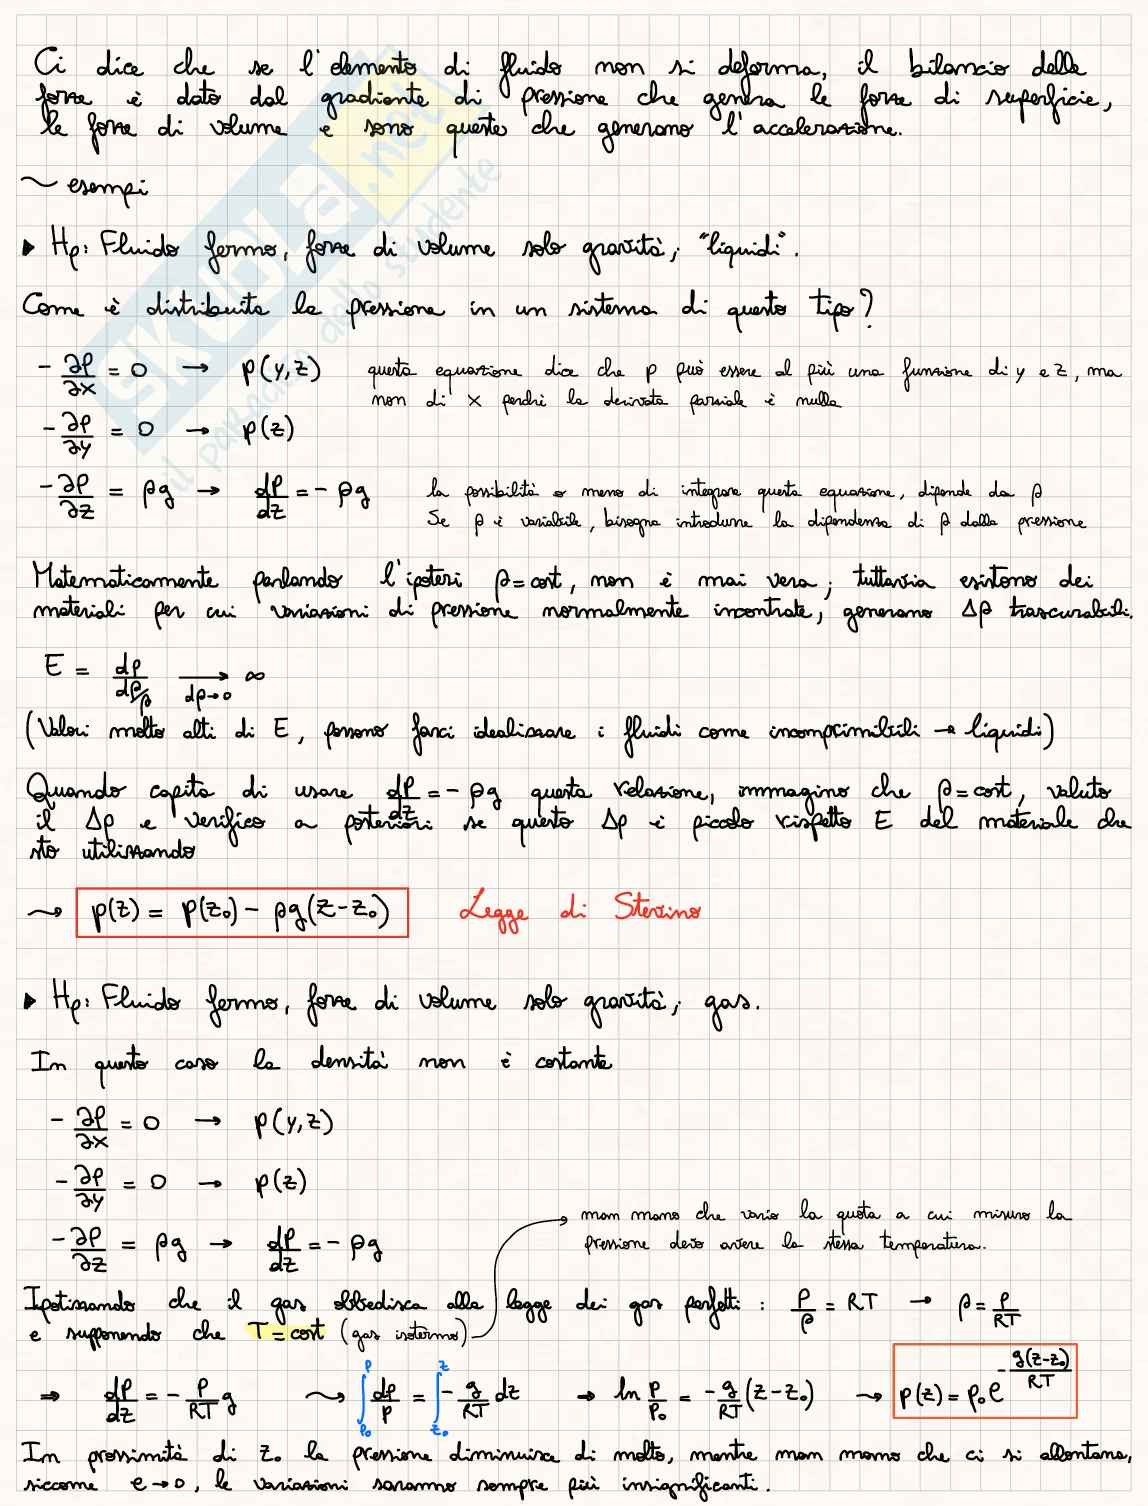 Ci dice che se l'elemento di fluido non si deforma, il bilancio delle
forze è dato dal gradiente di pressione che genera le forze di superficie,
le forze di volume e sono queste che generano l'accelerazione.
~ esempi
▶ Hp: Fluido fermo, forze di volume solo gravità, "liquidi".
Come è distribuita la pressione in un sistema di questo tipo?
- ∂p/∂x = 0 → p(y,z) questa equazione dice che p può essere al più una funzione di y e z, ma
non di x perché la derivata parziale è nulla
- ∂p/∂y = 0 → p(z)
- ∂p/∂z = ρg → dp/dz = - ρg la possibilità o meno di integrare questa equazione, dipende da ρ
Se ρ è variabile, bisogna introdurre la dipendenza di ρ dalla pressione
Matematicamente parlando l'ipotesi ρ=cost, non è mai vera; tuttavia esistono dei
materiali per cui variazioni di pressione normalmente incontrate, generano Δρ trascurabili.
E = dp/dρ/ρ → dρ→0 ∞
(Valori molto alti di E, possono farci idealizzare i fluidi come incomprimibili → liquidi)
Quando capita di usare dp/dz = - ρg questa relazione, immagino che ρ=cost, valuto
il Δp e verifico a posteriori se questo Δp è piccolo rispetto E del materiale che
sto utilizzando
⤳ p(z) = p(z₀) - ρg(z-z₀) Legge di Stevino
▶ Hp: Fluido fermo, forze di volume solo gravità, gas.
In questo caso la densità non è costante
- ∂p/∂x = 0 → p(y,z)
- ∂p/∂y = 0 → p(z)
man mano che vario la quota a cui misuro la
- ∂p/∂z = ρg → dp/dz = - ρg pressione devo avere la stessa temperatura.
Ipotizzando che il gas obbedisca alla legge dei gas perfetti : p/ρ = RT → ρ = p/RT
e supponendo che T=cost (gas isotermo)
⇒ dp/dz = - p/RT g ⤳ ∫p₀^p dp/p = ∫z₀^z - g/RT dz ⇒ ln p/p₀ = - g/RT (z-z₀) → p(z) = p₀ e^(-g(z-z₀)/RT)
In prossimità di z₀ la pressione diminuisce di molto, mentre man mano che ci si allontana,
siccome e→0, le variazioni saranno sempre più insignificanti.
SKUOLA.net
il paradiso dello studente